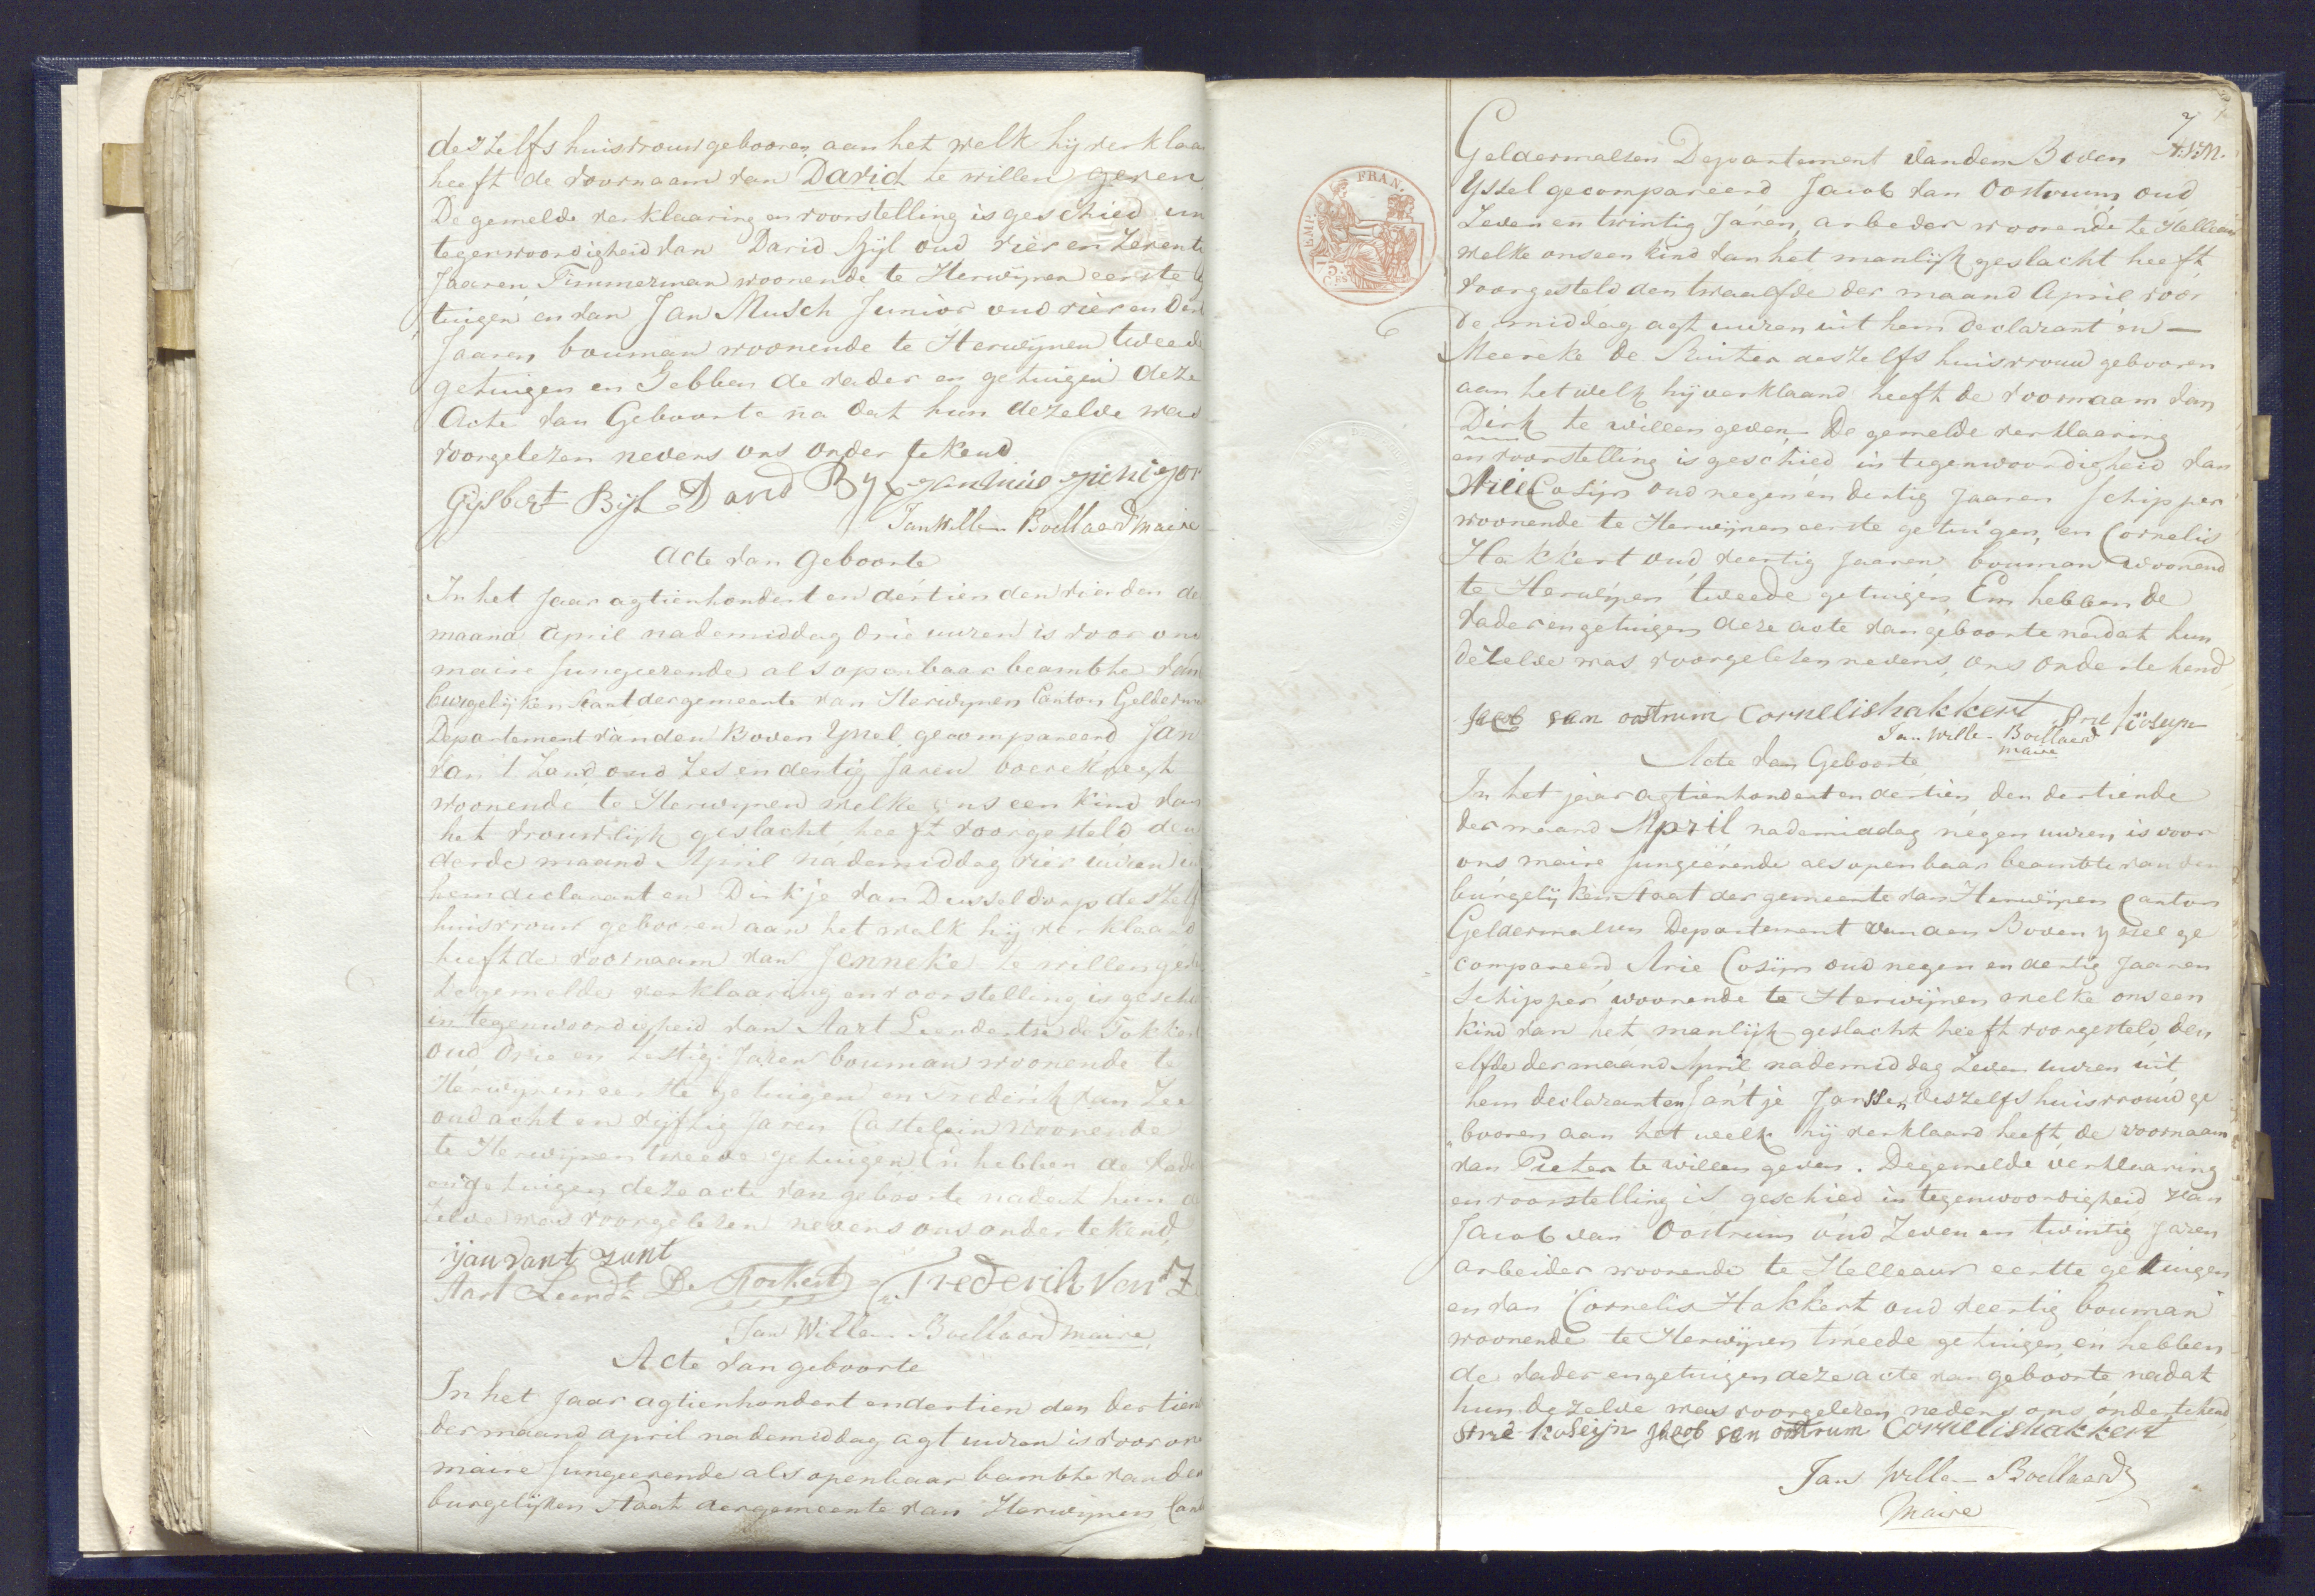 deszelfs huisvrouw gebooren aan het welk hij verklaa
heeft de voornaam van David te willen geven
De gemelde verklaaring en voorstelling is geschied in
tegenwoordigheid van David Bijl oud vier en zevent
Jaaren Timmerman woonende te Herwijnen eerste
tuigen en van Jan Musch Junior oud vier en
Jaaren bouman woonende te Herwijnen tweede
getuigen en Hebben de vader en getuigen deze
Acte van Geboorte na dat hun dezelve was
voorgelezen nevens ons ondertekend
Gijsbert Bijl David Byl
Jan Willem Boellaard maire
Acte van Geboorte
In het Jaar agtienhondert en dertien den vierden de
maand April nademiddag drie uuren is voor ons
maire fungeerende als openbaar beambte van
burgelijken staat der gemeente van Herwijnen Canton Gelderm
Departement van den Boven Yssel gecompareerd Jan
van t Zand oud zes en dertig Jaren boereknegt
woonende te Herwijnen welke ons een kind van
het vrouwlijk geslacht heeft voorgesteld den
derde maand April nademiddag vier uuren
hem declarant en Dirkje van Dusseldorp deszelfs
huisvrouw gebooren aan het welk hij verklaard
heeft de voornaam van Jenneke te willen geve
De gemelde verklaaring en voorstelling is gesch
in tegenwoordigheid van Aart Leendertse de Fokkert
oud drie en zestig Jaren bouman woonende te
Herwijnen eerste getuigen en Frederik van Zee
oud acht en vijftig Jaren Castelein woonende
te Herwijnen tweede getuigen En hebben de vade
en getuigen deze acte van geboorte nadat hun de
zelve was voorgelezen nevens ons ondertekend
Jan vant zant
Aart Leend: De Fockert Frederik Van Ze
Jan Willem Boellaard maire
Acte van geboorte
In het Jaar agtienhondert en dertien den dertien
der maand april nademiddag agt uuren is voor on
maire fungeerende als openbaar bambte van de
burgelijken staat der gemeente van Herwijnen Cant
7
Geldermalsen Departement van dem Boven
Yssel gecompareerd Jacob van Oostrum oud
zeven en twintig Jaren, arbeder woonende te Helleau
welke ons een kind van het manlijk geslacht heeft
voorgesteld den twaalfde der maand April voor
de middag agt uuren uit hem declarant en —
Meereke de Ruiter deszelfs huisvrouw gebooren
aan het welk hij verklaand heeft de voornaam van
Dirk te willen geven De gemelde verklaaring
en voorstelling is geschied in tegenwoordigheid van
Cosijn oud negen en dertig Jaaren schipper
woonende te Herwijnen eerste getuigen, en Cornelis
Hakkert oud veertig Jaaren bouman woonend
te Herwijnen tweede getuigen En hebben de
vader en getuigen deze acte van geboorte nadat hun
dezelve was voorgelezen nevens ons ondertekend
Jacob van oostrum Cornelis hakkert Arie koseijn
Jan Willem Boellaard
maire
Acte van Geboorte
In het jaar agtienhondert en dertien den dertiende
der maand April nademiddag negen uuren, is voor
ons maire fungeerende als openbaar beambte van den
burgelijken staat der gemeente van Herwijnen Canton
Geldermalsen Departement van den Boven yssel ge
compareerd Arie Cosijn oud negen en dertig Jaaren
Schipper woonende te Herwijnen welke ons een
kind van het manlijk geslacht heeft voorgesteld, den
elfde der maand April nademiddag zeven uuren uit
hem declarant en Jantje Janssen deszelfs huisvrouw ge
booren aan het welk hij verklaard heeft de voornaam
van Pieter te willen geven. De gemelde verklaaring
en voorstelling is geschied in tegenwoordigheid van
Jacob van Oostrum oud Zeven en twintig Jaren
arbeider woonende te Helleauw eertte getuigen
en van Cornelis Hakkert oud veertig bouman
woonende te Herwijnen tweede getuigen, en hebben
de vader en getuigen deze acte van geboorte nadat
hun dezelve was voorgelezen nevens ons ondertekend
Arie koseijn Jacob van oostrum Cornelis hakkert
Jan Willem Boellaard
Maire
EMP. FRAN.